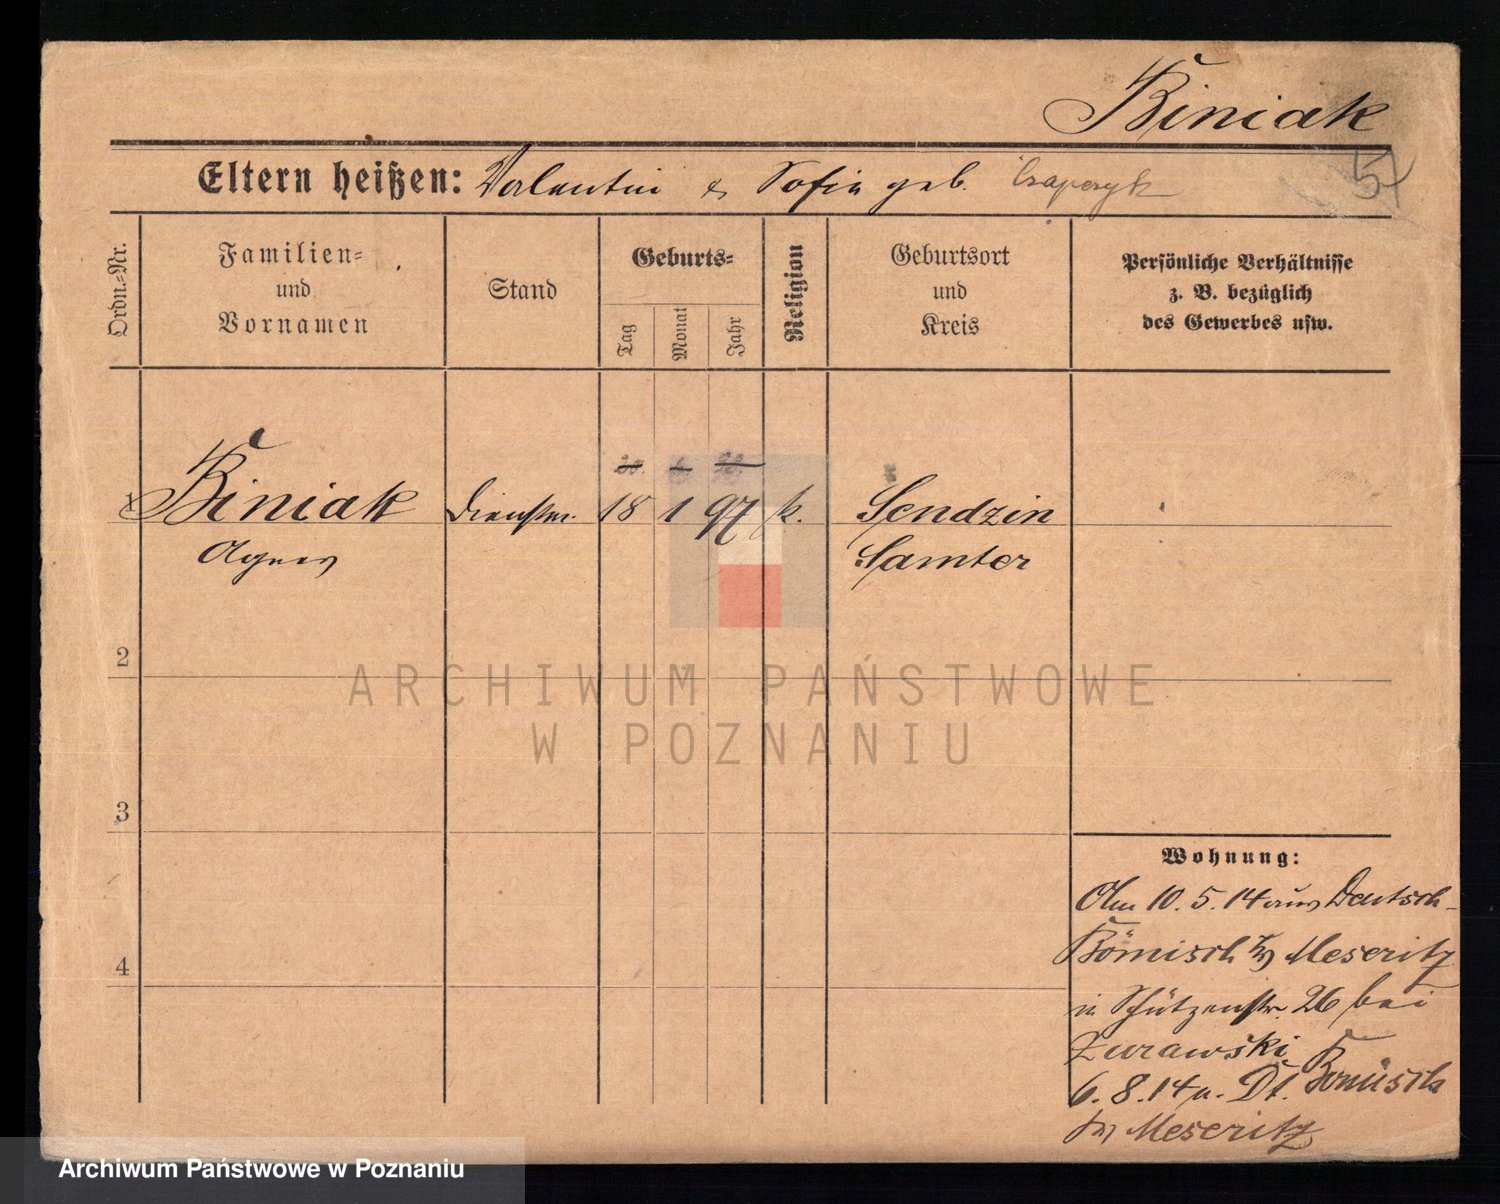 Biniak
57
Eltern heißen: Valentin & Sofia geb. Czapczyk
Ordn.=Nr.
Familien=
und
Vornamen
Stand
Geburts=
Tag
Monat
Jahr
Religion
Geburtsort
und
Kreis
Persönliche Verhältnisse
z. B. bezüglich
des Gewerbes usw.
1 Biniak Dienstm. 18 1 97 k. Sendzin
Agnes Samter
2
3
4
Wohnung:
Am 10. 5. 14 aus Deutsch-
Bömisch Krs Meseritz
in Schützenstr. 26 bei
Zurawski
6. 8. 14 n. Dt. Bömisch
Krs Meseritz
ARCHIWUM PAŃSTWOWE
W POZNANIU
Archiwum Państwowe w Poznaniu